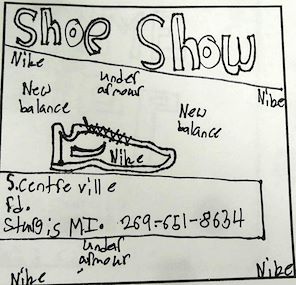 Shoe Show
Nike
under
armour
Nike
New
balance
New
balance
Nike
S. Centreville
rd.
Sturgis M.I. 269-651-8634
under
armour
Nike
Nike